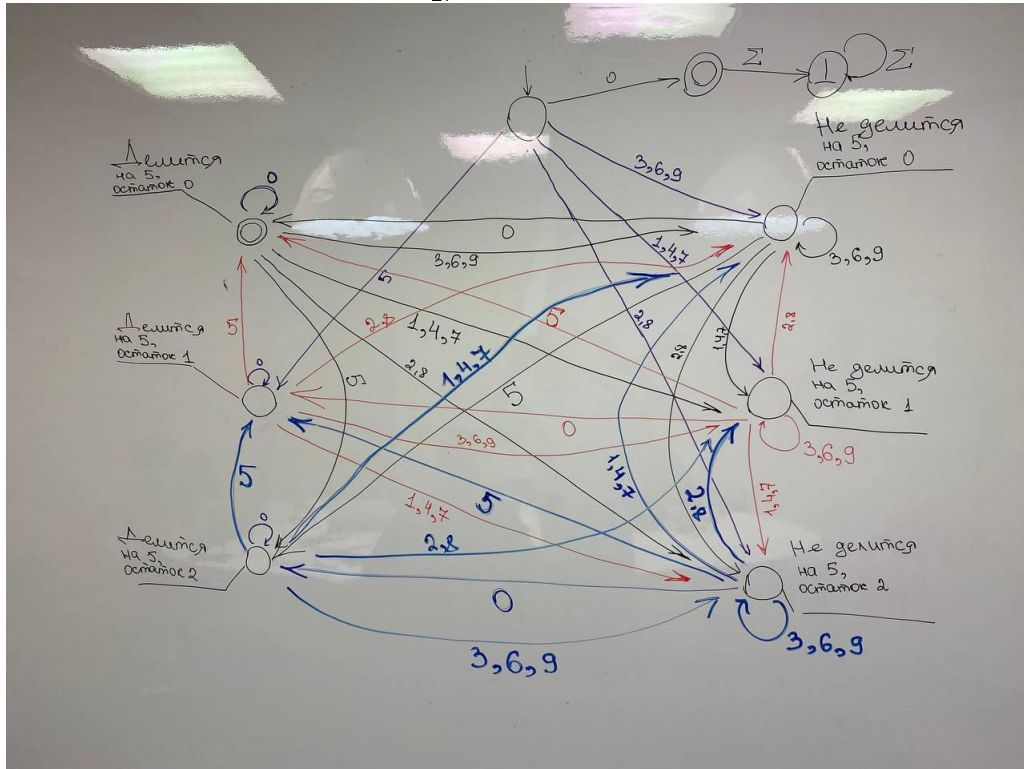 0
Σ
⊥
Σ
Не делится
на 5,
остаток 0
Делится
на 5,
остаток 0
0
3,6,9
0
3,6,9
1,4,7
3,6,9
5
2,8
5
2,8
1,4,7
2,8
2,8
1,4,7
2,8
Делится
на 5,
остаток 1
5
0
5
1,4,7
5
Не делится
на 5,
остаток 1
0
3,6,9
3,6,9
5
1,4,7
5
1,4,7
2,8
1,4,7
2,8
Делится
на 5,
остаток 2
0
Не делится
на 5,
остаток 2
0
3,6,9
3,6,9